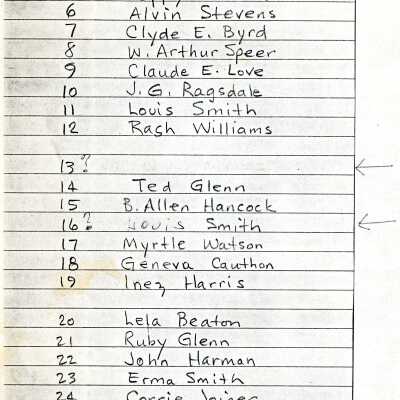 6 Alvin Stevens
7 Clyde E. Byrd
8 W. Arthur Speer
9 Claude E. Love
10 J. G. Ragsdale
11 Louis Smith
12 Rash Williams
13?
14 Ted Glenn
15 B. Allen Hancock
16? Louis Smith
17 Myrtle Watson
18 Geneva Cauthon
19 Inez Harris
20 Lela Beaton
21 Ruby Glenn
22 John Harman
23 Erma Smith
24 Carrie Joiner